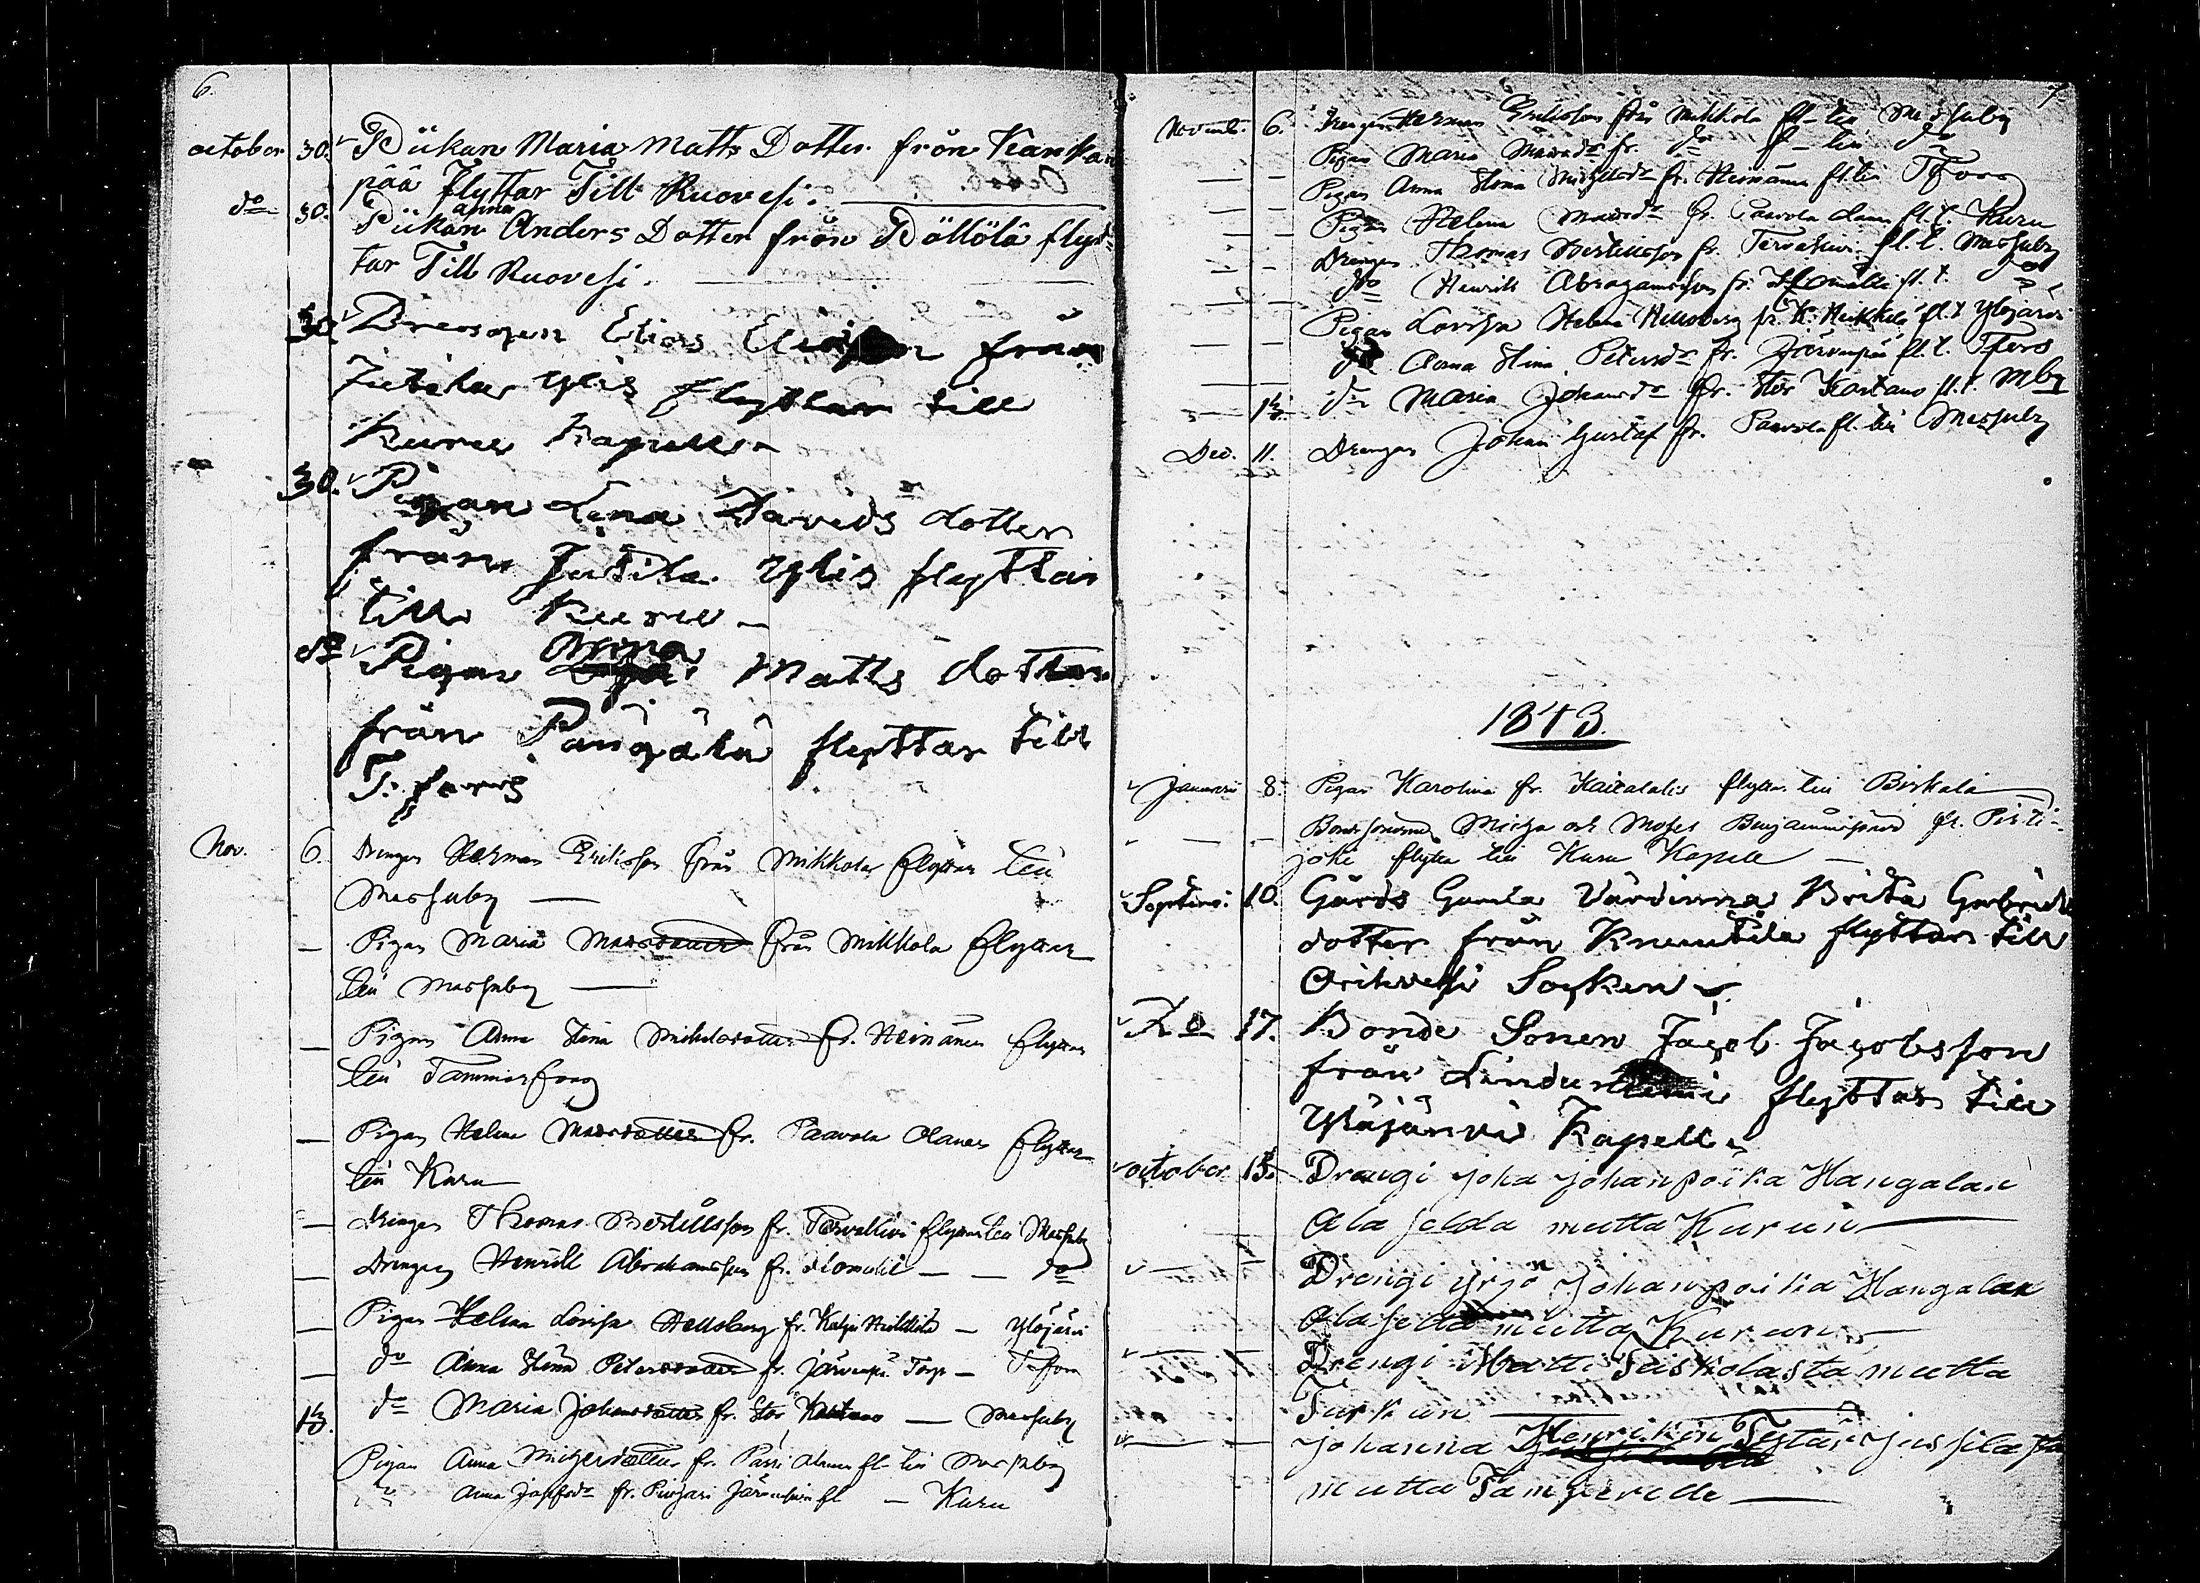 6.
october 30. Piikan Maria Matts Dotter från Kankan
pää flyttar Till Ruovesi.
do 30. Piikan anna Anders Dotter från Pöllölä flyt-
tar Till Ruovesi.
30 Drengen Elias från
Jutila Ylis flyttar till
Kuru Kapell
30. Pigan Lena Davids dotter
från Jutila Ylis flyttar
till Kuru
do Pigan Anna Matts dotter
från Pängälä flyttar till
T. fors
Nov. 6. Drengen Herman Eriksson från Mikkola flyttar till
Messuby
— Pigan Maria Matsdotter från Mikkola flyttar
till Messuby
— Pigan Anna Stina Mickelsdotter fr. Heinänen flyttar
till Tammerfors
— Pigan Helena Matsdotter fr. Paavola flyttar
till Kuru
— Drengen Thomas Bertillsson fr. Tervakivi flyttar till Messuby
— Drengen Henrik Abrahamsson fr. — — do
— Pigan Helena Lovisa Hellsberg fr. Heikkilä — Ylöjärvi
— do Anna Stina Petersdotter fr. Järvenpä Torp — Tfors
13. do Maria Johansdotter fr. Stor Kartano — Messuby
Pigan Anna dotter fr. fl. till Messuby
" Anna fr. fl — Kuru
7
Novemb. 6. Drengen Herman Eriksson från Mikkola fl- till Messuby
— — Pigan Maria Matsdr fr. do fl- till do
— — Pigan Anna Stina Michelsdr fr. Heinänen fl. till Tfors
— — Pigan Helena Matsdr fr. Paavola fl. t. Kuru
— — Drengen Thomas Bertillsson fr. Tervakivi fl. t. Messuby
— — do Henrik Abrahamsson fr. fl. t. do
— — Pigan Lovisa Helena Hellsberg fr. K. Heikkilä fl. t. Ylöjärvi
— — do Anna Stina Petersdr fr. Järvenpää fl. t. Tfors
— 13. do Maria Johansdr fr. Stor Kartano fl. t. Mby
Dec. 11. Drengen Johan Gustaf fr. Paavola fl. till Messuby
1843.
Januari 8. Pigan Karolina fr. flyttar till Birkala
— — Micha och Moses Benjaminssöner fr. Pirti-
joki flytta till Kuru Kapell —
Septem: 10. Gårds Gamla Värdinna Brita Gabriels
dotter från Knuutila flyttar till
Orihvesi Socken
Do 17. Bonde Sonen Jacob Jacobsson
från flyttar till
Ylöjärvi Kapell
october 15. Drengi Joha Johanpoika Hangalan
Ala jelda mutta Kuruun
— — Drengi Yrjö Johanpoika Hangalan
Alajelda mutta Kuruun
— — Drengi Matti Siiskolasta mutta
Turkun
— — Johanna Henrikin Tytär Jussila
mutta Tampereelle